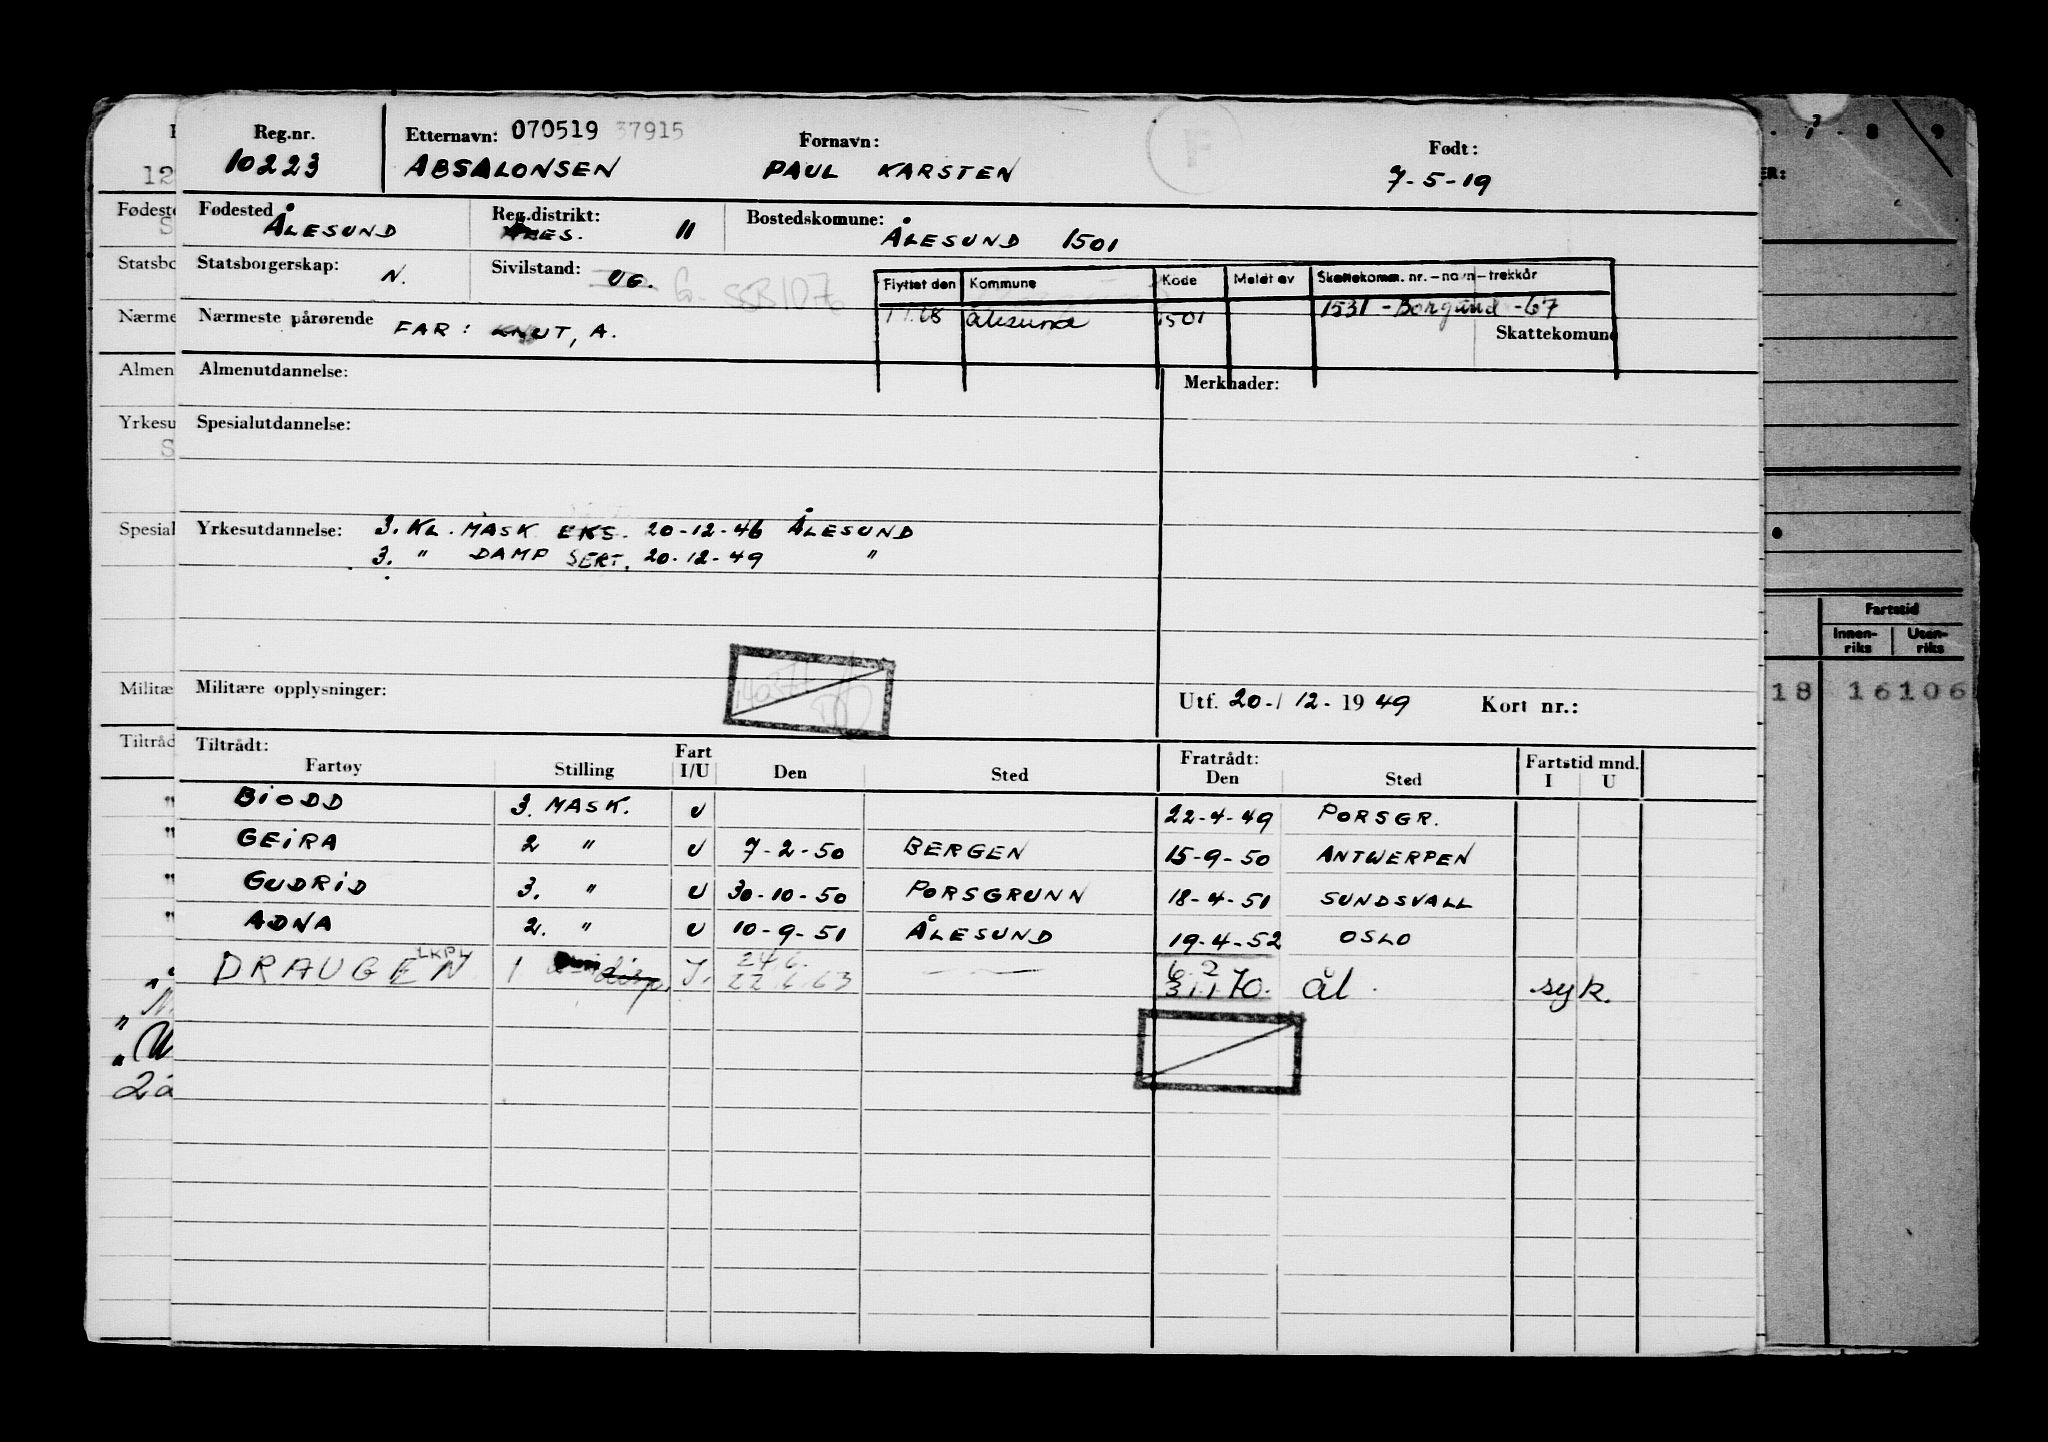 Reg.nr. Etternavn: 070519 37915 Fornavn: Født:
10223 ABSALONSEN PAUL KARSTEN 7-5-19
Fødested Reg.distrikt: Bostedskomune:
ÅLESUND ÅLES. 11 ÅLESUND 1501
Statsborgerskap: N. Sivilstand: UG. G. SSB 1076
Flyttet den Kommune Kode Meldt av Skattekomm. nr. - navn - trekkår
Ålesund 1501 1531 - Borgund - 67
Nærmeste pårørende FAR: KNUT, A. Skattekomune
Almenutdannelse: Merknader:
Spesialutdannelse:
Yrkesutdannelse: 3. KL. MASK EKS. 20-12-46 ÅLESUND
3. " DAMP SERT. 20-12-49 "
Militære opplysninger: Utf. 20-12-1949 Kort nr.:
Tiltrådt: Fratrådt:
Fartøy Stilling Fart I/U Den Sted Den Sted Fartstid mnd. I U
BIODD 3. MASK. U 22-4-49 PORSGR.
GEIRA 2 " U 7-2-50 BERGEN 15-9-50 ANTWERPEN
GUDRID 3. " U 30-10-50 PORSGRUNN 18-4-51 SUNDSVALL
ADNA 2. " U 10-9-51 ÅLESUND 19-4-52 OSLO
LKPL 24.6. 6 2
DRAUGEN 1 disp. I. 22.6.63 31.1.70. ål. syk.
12
Fødeste
Statsbo
Nærme
Almen
Yrkesu
S
Spesial
Militæ
Tiltråd
2
7 - 8 - 9
ER:
Fartstid
Innen-riks Uten-riks
18 16 106